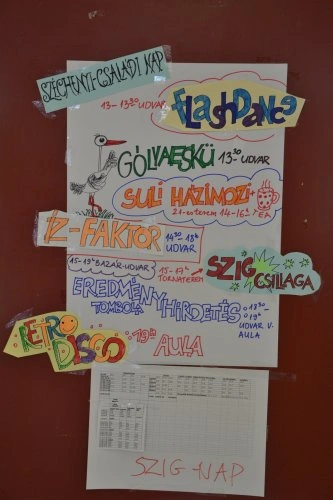 SZÉCHENYI-CSALÁDI NAP
13-13³⁰ UDVAR
FLASHDANCE
GÓLYAESKÜ 13³⁰-UDVAR
SULI HÁZIMOZI+
21-es terem 14-16ʰ TEA
IZ-FAKTOR 14³⁰-18ʰ
UDVAR
15-19ʰ BAZÁR-UDVAR
15-17ʰ
TORNATEREM
SZIG
CSILLAGA
EREDMÉNYHIRDETÉS
TOMBOLA
:18³⁰-
19ʰ
UDVAR V.
AULA
RETRO
DISCO
:19ʰ
AULA
SZIG NAP